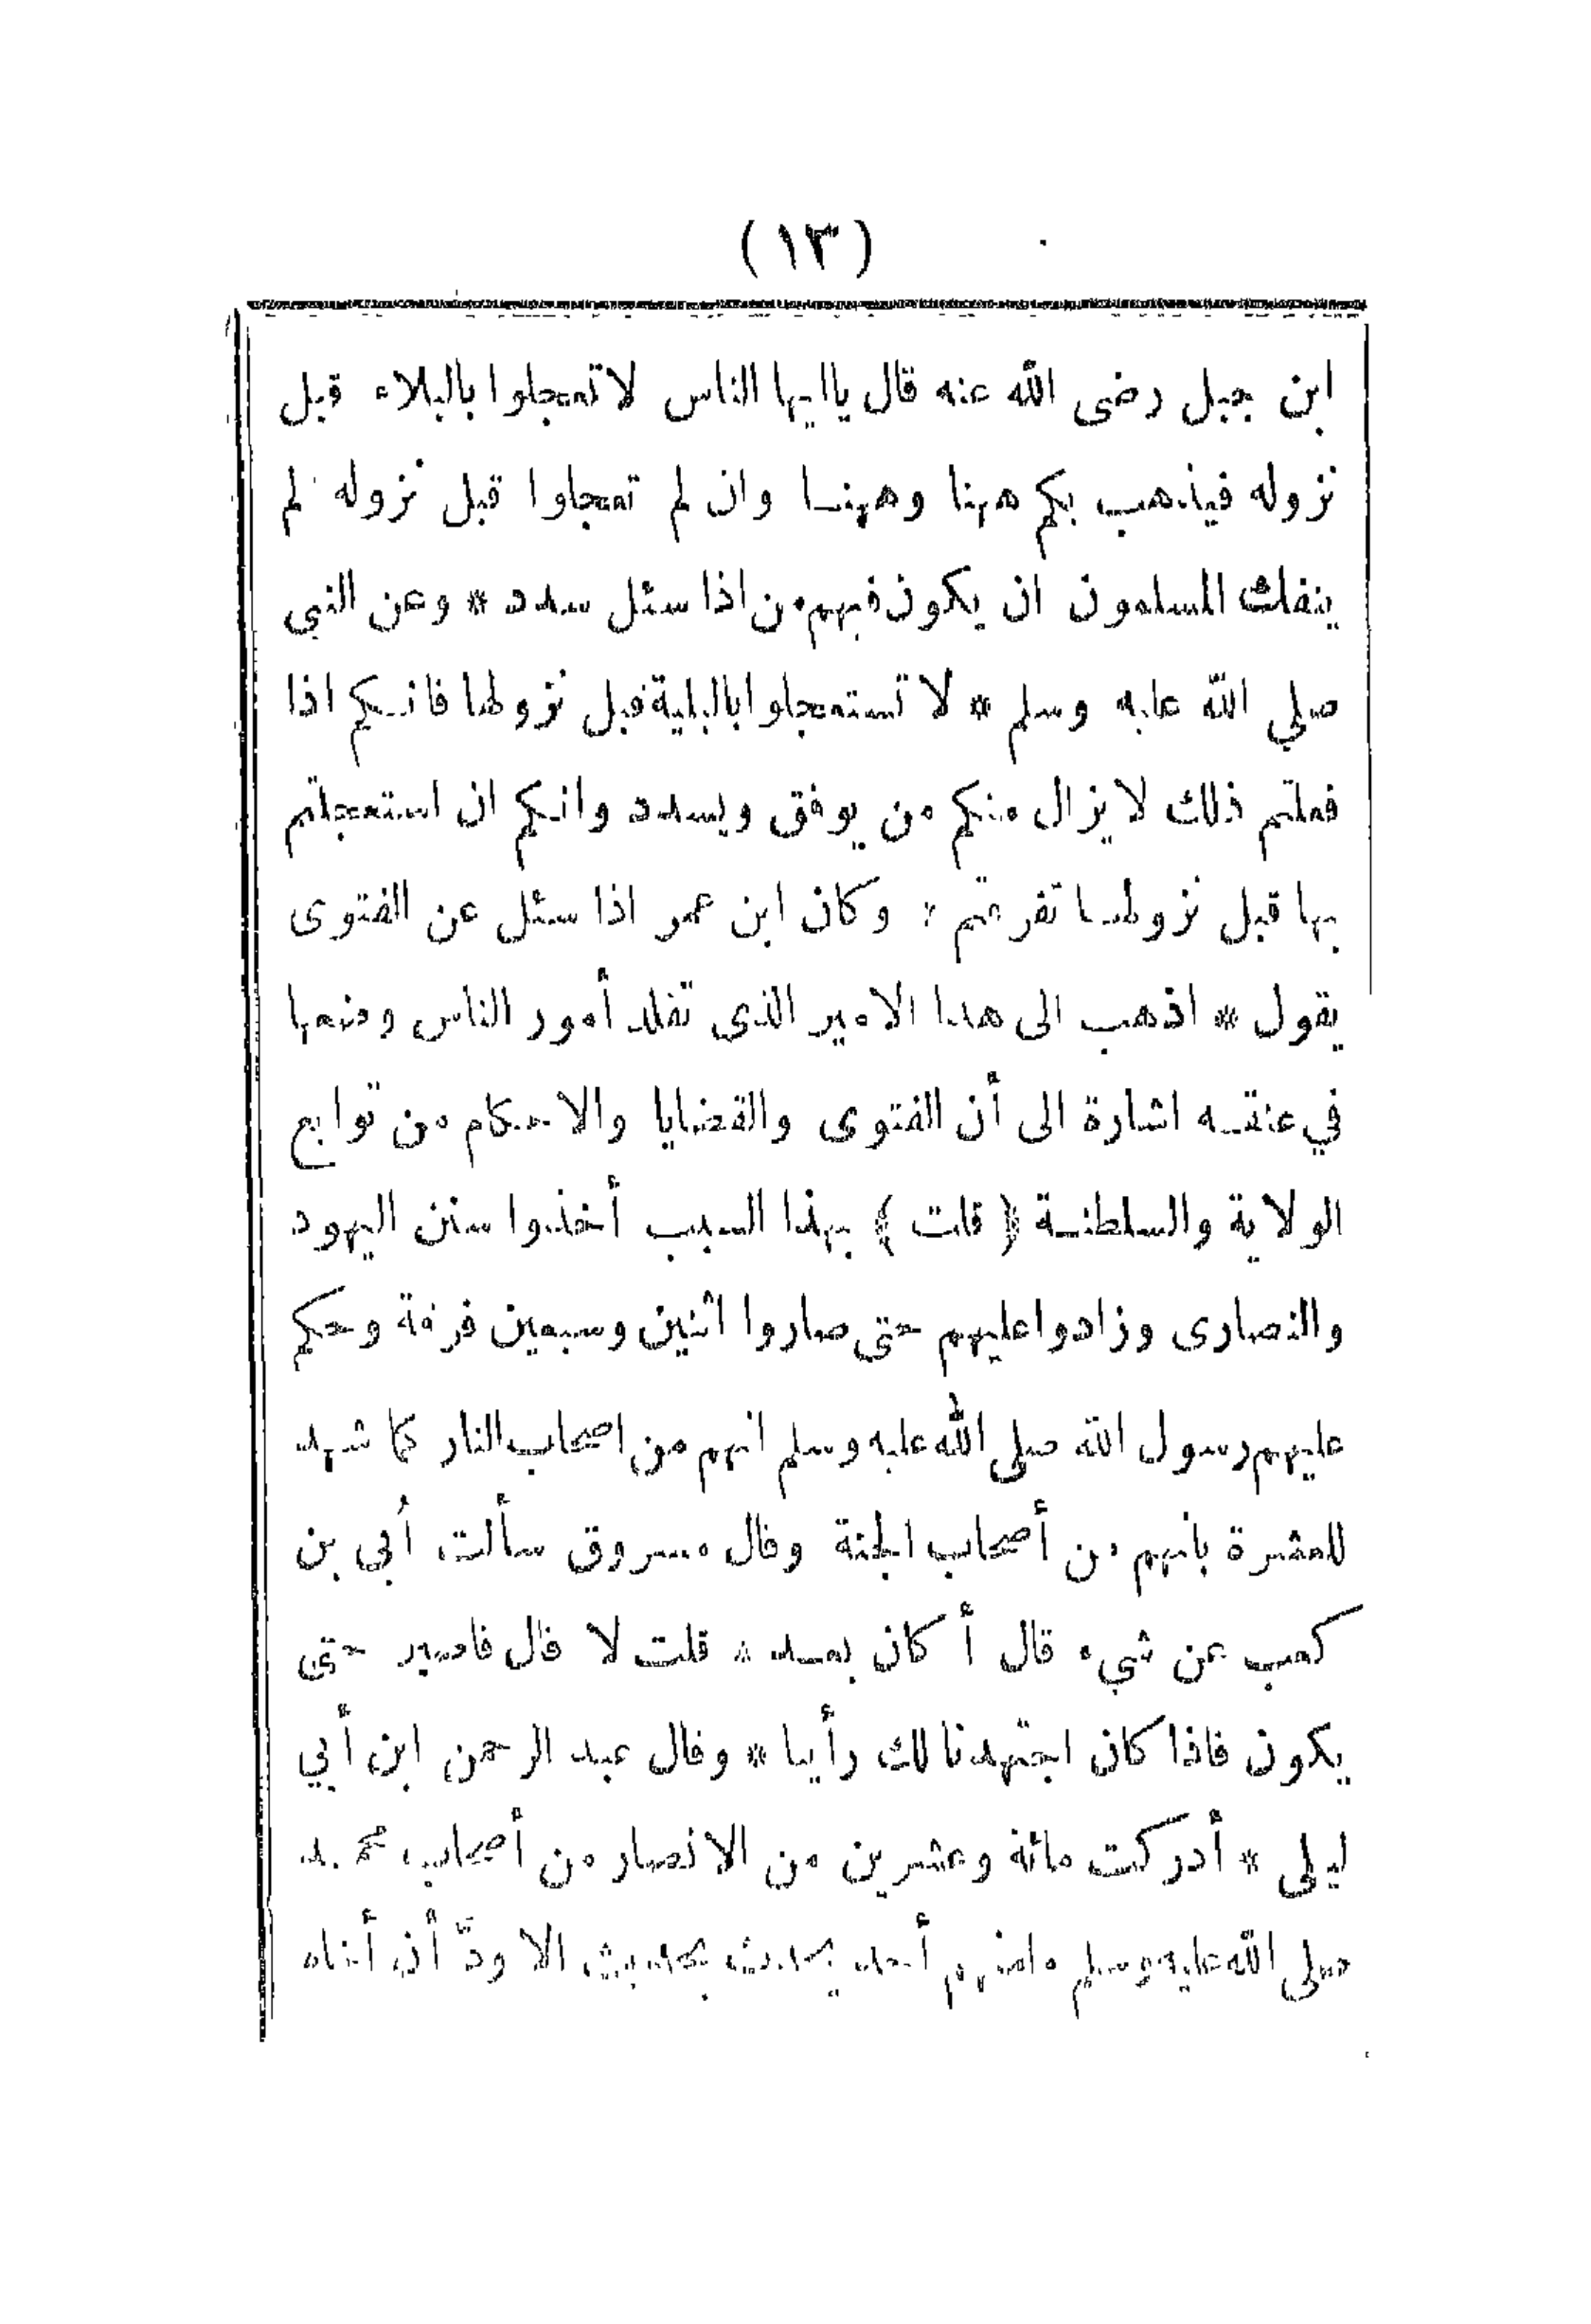 (١٣)
ابن جبل رضى الله عنه قال ياايها الناس لا تعجلوا بالبلاء قبل
نزوله فيذهب بكم ههنا وههنا وان لم تعجلوا قبل نزوله لم
ينفك المسلمون ان يكون فيهم من اذا سئل سدد * وعن النبي
صلي الله عليه وسلم * لا تستعجلوا بالبلية قبل نزولها فانكم اذا
فعلتم ذلك لا يزال منكم من يوفق ويسدد وانكم ان استعجلتم
بها قبل نزولها تفرقتم * وكان ابن عمر اذا سئل عن الفتوى
يقول * اذهب الى هذا الامير الذى تقلد أمور الناس وضعها
في عنقه اشارة الى أن الفتوى والقضايا والاحكام من توابع
الولاية والسلطنة ﴿ قلت ﴾ بهذا السبب أخذوا سنن اليهود
والنصارى وزادوا عليهم حتى صاروا اثنين وسبعين فرقة وحكم
عليهم رسول الله صلى الله عليه وسلم انهم من اصحاب النار كما شهد
للعشرة بانهم من أصحاب الجنة وقال مسروق سألت أبي بن
كعب عن شيء قال أ كان بعد * قلت لا قال فاصبر حتى
يكون فاذا كان اجتهدنا لك رأينا * وقال عبد الرحمن ابن أبي
ليلى * أدركت مائة وعشرين من الانصار من أصحاب محمد
صلى الله عليه وسلم مامنهم أحد يحدث بحديث الا ودّ أن أخاه